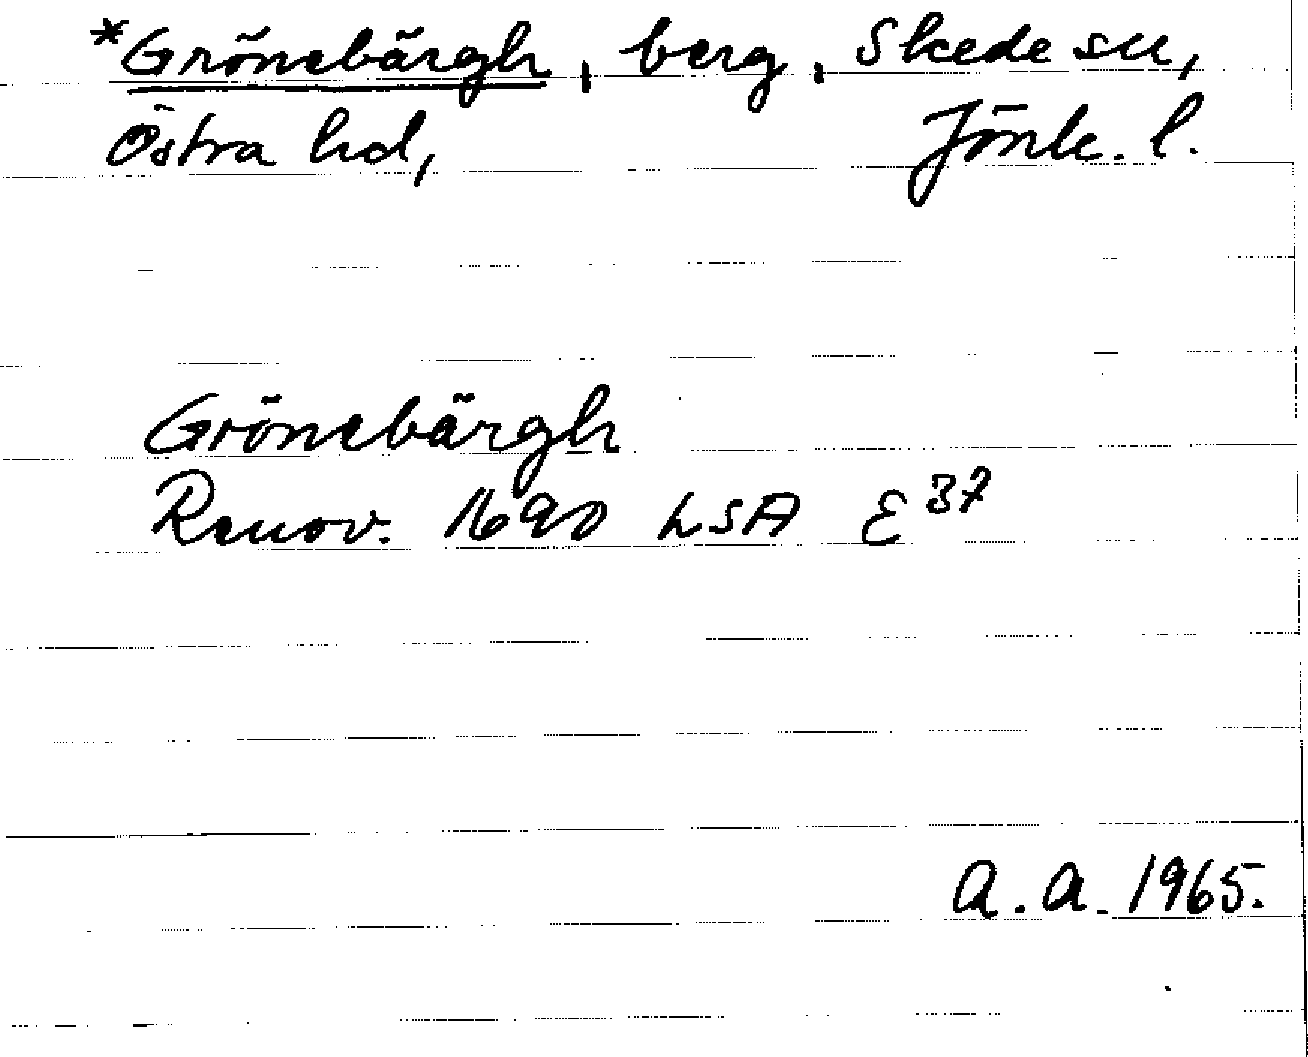 *Grönebärgh, berg, Skede sn,
Östra hd, Jönk. l.
Grönebärgh
Renov. 1690 LSA E 37
A. A. 1965.